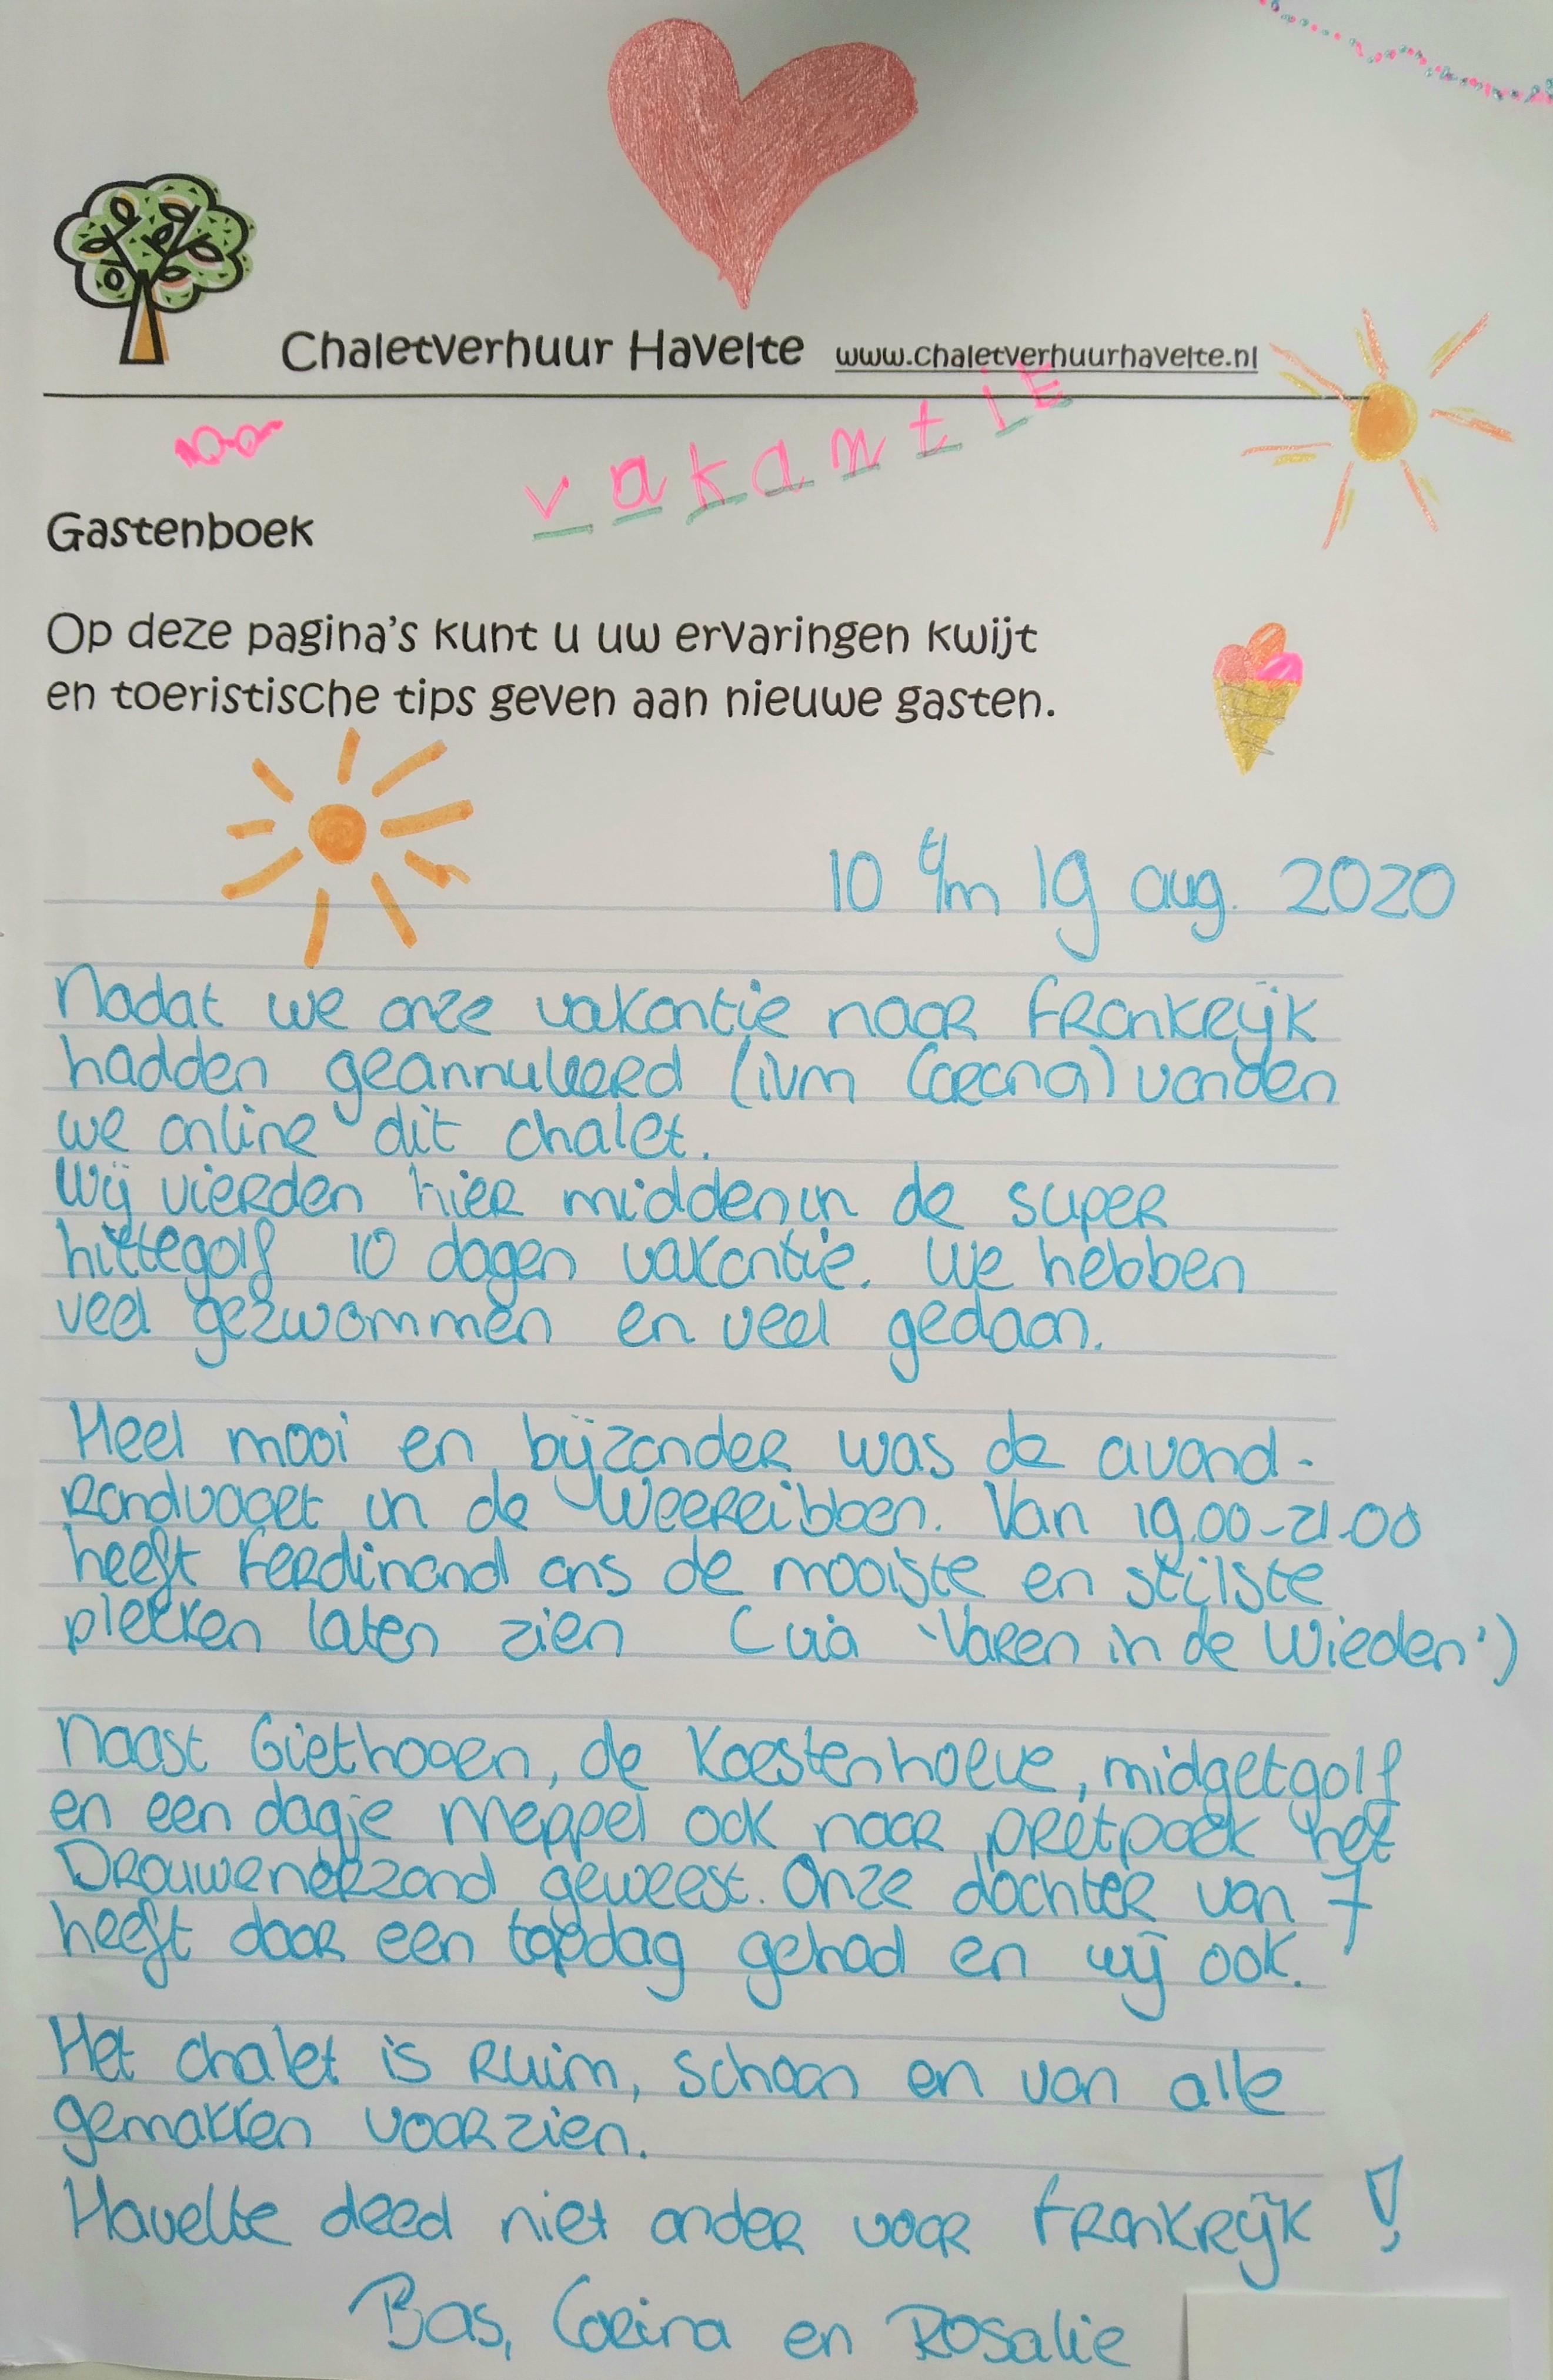 Chaletverhuur Havelte www.chaletverhuurhavelte.nl
vakantiE
Gastenboek
Op deze pagina's kunt u uw ervaringen kwijt
en toeristische tips geven aan nieuwe gasten.
10 t/m 19 aug. 2020
Nadat we onze vakantie naar Frankrijk
hadden geannuleerd (ivm Corona) vonden
we online dit chalet.
Wij vierden hier midden in de super
hittegolf 10 dagen vakantie. We hebben
veel gezwommen en veel gedaan.
Heel mooi en bijzonder was de avond-
rondvaart in de Weerribben. Van 19.00-21.00
heeft Ferdinand ons de mooiste en stilste
plekken laten zien (via 'Varen in de Wieden')
Naast Giethoorn, de Koestenhoeve, midgetgolf
en een dagje Meppel ook naar pretpark het
Drouwenerzand geweest. Onze dochter van 7
heeft daar een topdag gehad en wij ook.
Het chalet is ruim, schoon en van alle
gemakken voorzien.
Havelte deed niet onder voor Frankrijk !
Bas, Corina en Rosalie